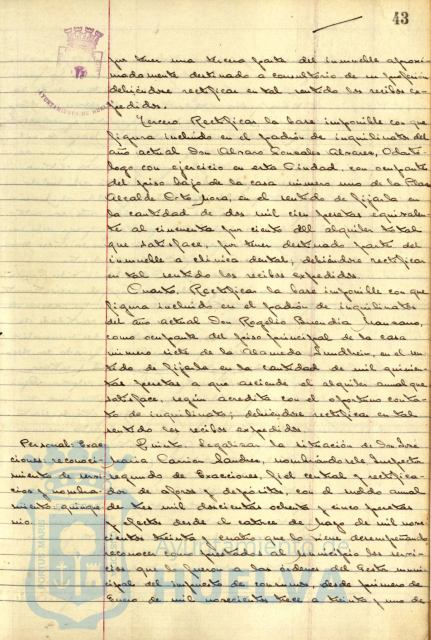 43
AYUNTAMIENTO DE HUELVA
por tener una tercera parte del inmueble aproxi-
madamente destinado a consultorio de su profesión
debiéndose rectificar en tal sentido los recibos ex-
pedidos.
Tercero. Rectificar la base imponible con que
figura incluido en el padrón de inquilinatos del
año actual Don Alvaro Gonzalez Alvarez, Odontó-
logo con ejercicio en esta Ciudad, con ocupante
del piso bajo de la casa número uno de la Plaza
Alcalde Coto Mora, en el sentido de fijarla en
la cantidad de dos mil cien pesetas equivalen-
te al cincuenta por ciento del alquiler total
que satisface, por tener destinado parte del
inmueble a clínica dental; debiéndose rectificar
en tal sentido los recibos expedidos.
Cuarto. Rectificar la base imponible con que
figura incluido en el padrón de inquilinatos
del año actual Don Rogelio Buendia Manzano,
como ocupante del piso principal de la casa
número siete de la Alameda Sundheim, en el sen-
tido de fijarla en la cantidad de mil quinien-
tas pesetas a que asciende el alquiler anual que
satisface, según acredita con el oportuno contra-
to de inquilinato; debiéndose rectificar en tal
sentido los recibos expedidos.
Personal: Exac-
ciones: reconoci-
miento de servi-
cios y nombra-
miento: quinque-
nio.
Quinto. Legalizar la situación de Don José
Maria Carrion Sandres, nombrándosele Inspector
segundo de Exacciones, fiel central y rectifica-
dor de aforos y depósitos, con el sueldo anual
de tres mil doscientas ochenta y cinco pesetas
y efectos desde el catorce de Mayo de mil nove-
cientos treinta y cuatro que lo viene desempeñando
reconocer como prestados al municipio los servi-
cios que lo fueron a las órdenes del Gestor muni-
cipal del impuesto de consumos desde primero de
Enero de mil novecientos trece a treinta y uno de
PORTUS MARIS
Ayuntamiento de
HUELVA